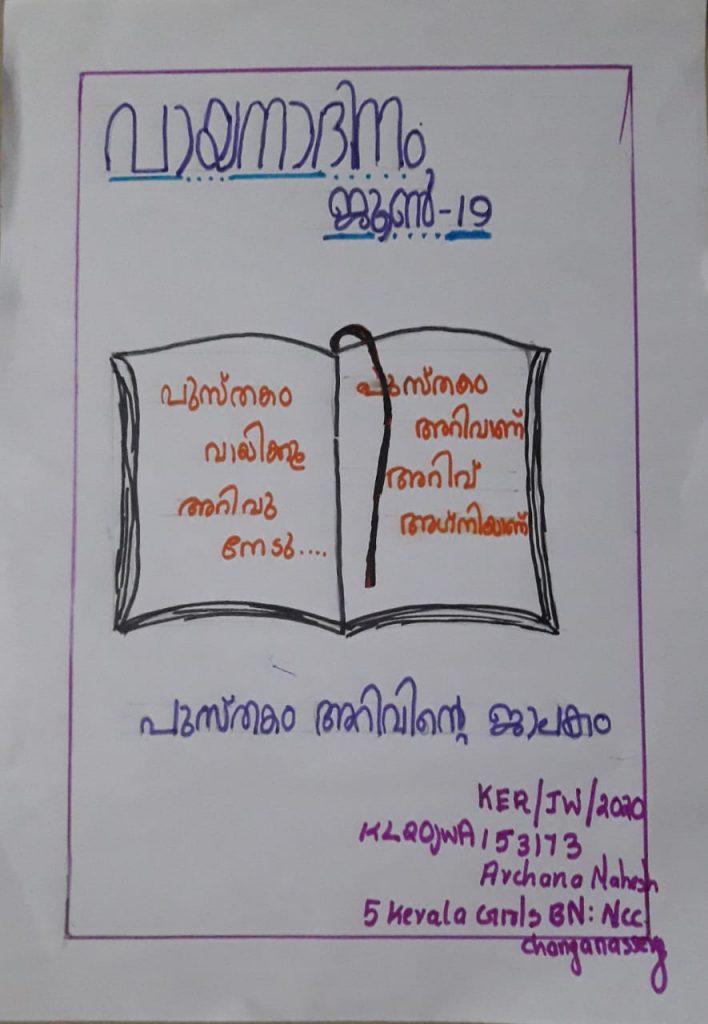 വായനാദിനം
ജൂൺ-19
പുസ്തകം
വായിക്കൂ
അറിവു
നേടു....
പുസ്തകം
അറിവാണ്
അറിവ്
അഗ്നിയാണ്
പുസ്തകം അറിവിന്റെ ജാലകം
KER/JW/2020
KL20JWA153173
Archana Mahesh
5 Kerala Girls BN: NCC,
changanassery